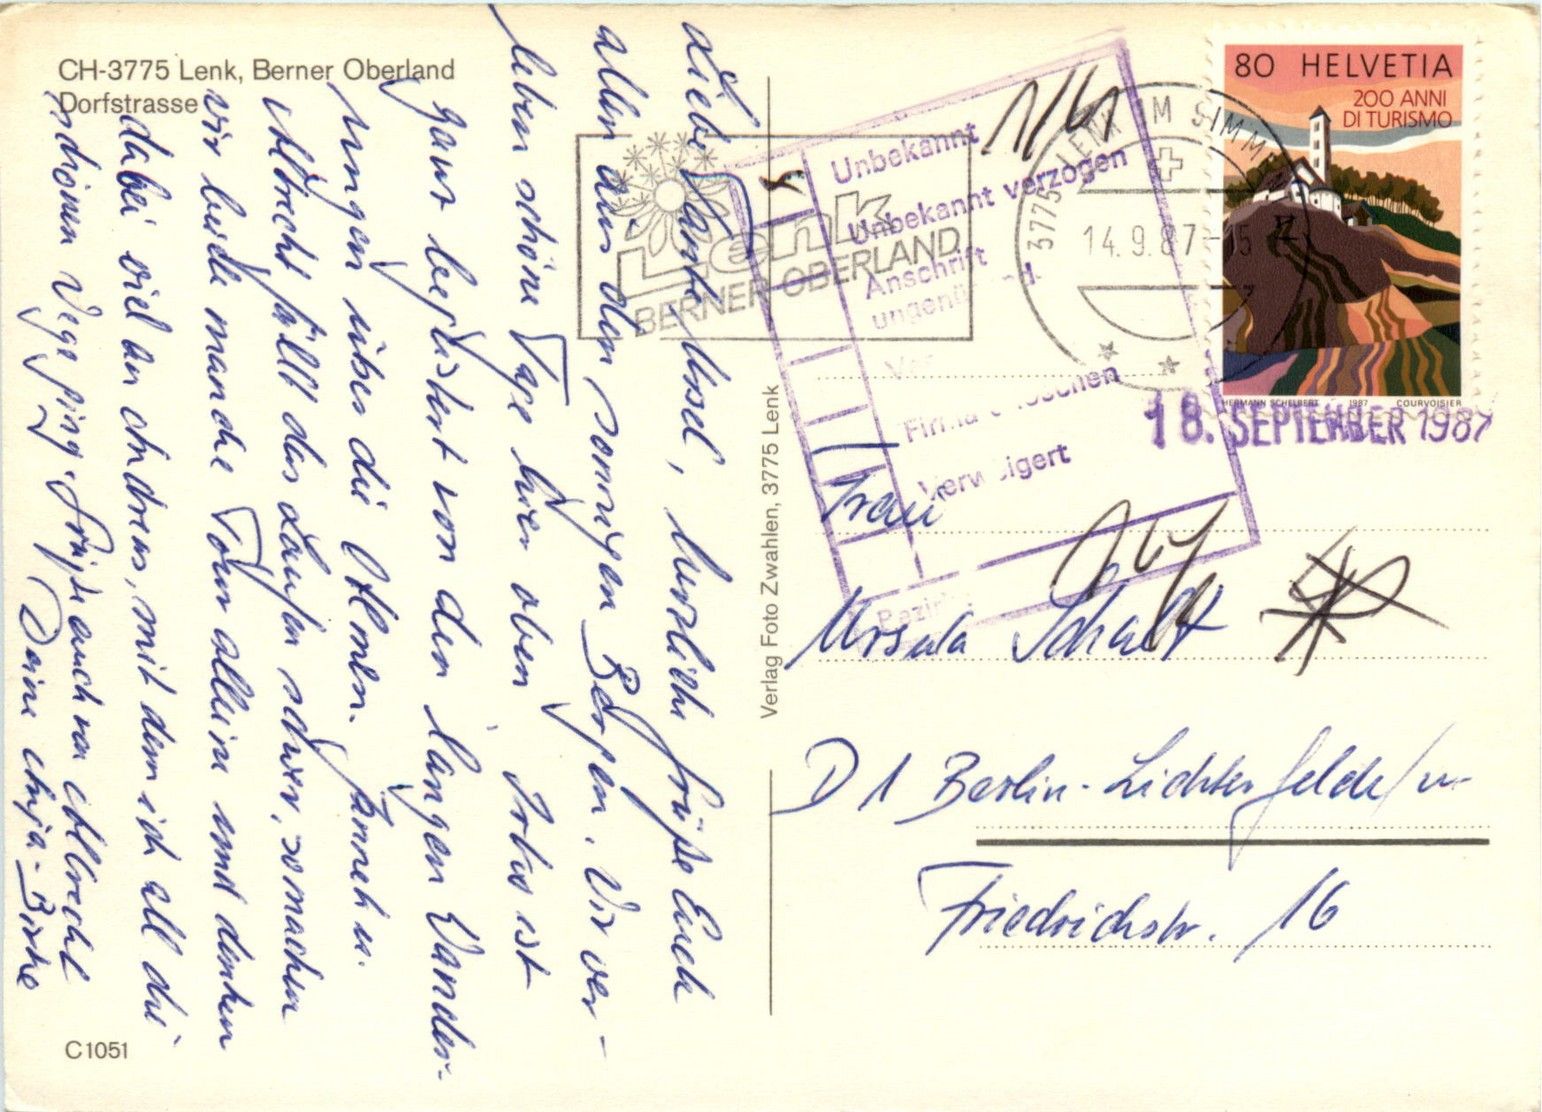 CH-3775 Lenk, Berner Oberland
Dorfstrasse
Liebe Tante Ursel, herzliche Grüße Euch
allen aus den sonnigen Bergen. Wir ver-
leben schöne Tage hier oben. ist
ganz begeistert von den langen Wander-
ungen über die Almen. Janneh u.
Albrecht fällt das Laufen schwer, so machen
wir beide manche Tour alleine und denken
dabei viel an Andreas, mit dem ich all die
schönen Wege ging. Grüße auch von Albrecht
Deine Anja-Birke
C1051
Verlag Foto Zwahlen, 3775 Lenk
Lenk
BERNER OBERLAND
3775 LENK IM SIMM
14.9.87-15
80 HELVETIA
200 ANNI
DI TURISMO
HERMANN SCHELBERT 1987 COURVOISIER
Unbekannt
Unbekannt verzogen
Anschrift
Firma
Verweigert
Bezirk
18. SEPTEMBER 1987
Frau
Ursula
D 1 Berlin-Lichterfelde/W
Friedrichstr. 16